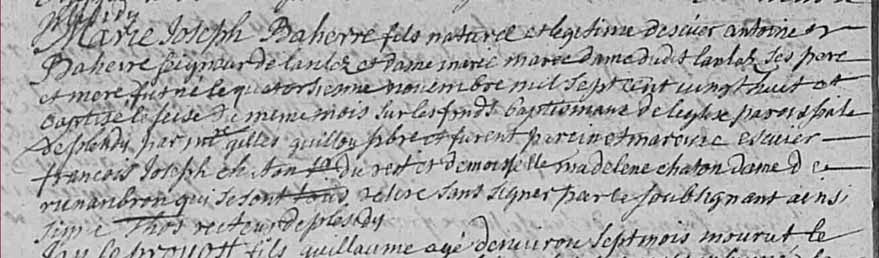 Marie Joseph Baherre fils naturel et legitime descuier antoine
Baherre seigneur de lanloz et dame marie maree dame dudit lanloz ses pere
et mere fut né le quatorsieme novembre mil sept cent vingt huit et
baptisé le seise du meme mois sur les fonds baptismaux de leglise paroissiale
de plesidy par mre gilles guillou pbre et furent parein et mareine escuier
francois Joseph chaton sr du rest et demoiselle madelene chaton dame de
runanbron qui se sont tous retire sans signer par le soubsignant ainsi
signe Thos recteur de plesidy
Jan le provost fils guillaume agé denviron sept mois mourut le